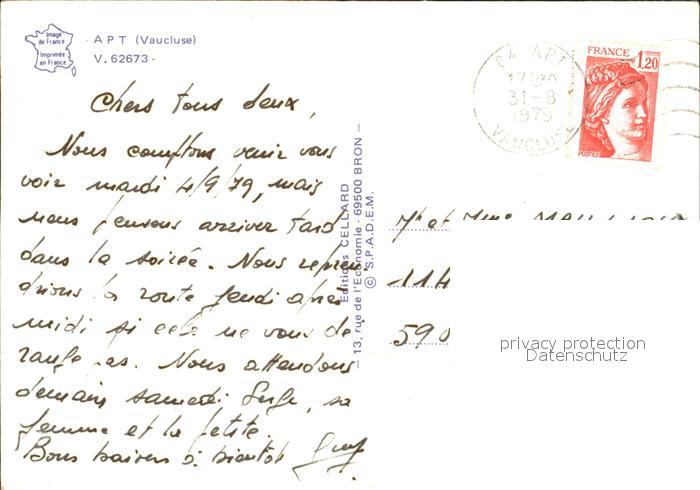 Image
de France
Imprimée
en France
APT (Vaucluse)
V. 62673 -
84 APT
17H30
31-8
1979
VAUCLUSE
FRANCE
1,20
POSTES
Chers tous deux,
Nous comptons venir vous
voir mardi 4/9/79, mais
nous pensons arriver tard
dans la soirée. Nous repren
drions la route jeudi après
midi si cela ne vous dé
range pas. Nous attendons
demain samedi Serge, sa
femme et la petite.
Bons baisers à bientôt
Editions CELLARD
- 13, rue de l'Economie - 69500 BRON -
© S.P.A.D.E.M.
Mr et Mme
114
590
privacy protection
Datenschutz